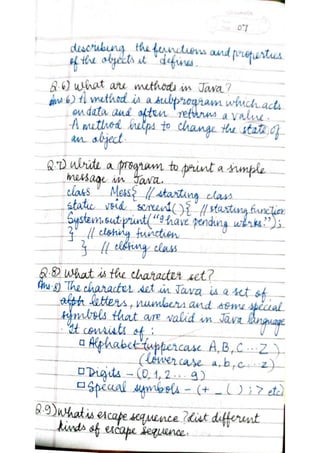 07
describing the functions and properties
of the objects it defines.
Q.6) What are methods in Java?
Ans 6) A method is a subprogram which acts
on data and often returns a value.
A method helps to change the state of
an object.
Q.7) Write a program to print a simple
message in Java.
class Mess{ // starting class
static void screen(){ // starting function
System.out.print("I have pending works!");
} // closing function
} // closing class
Q.8) What is the character set?
Ans 8) The character set in Java is a set of
alph letters, numbers and some special
symbols that are valid in Java language
It consists of :
□ Alphabet (uppercase A, B, C ... Z )
(lowercase a, b, c ... z)
□ Digits - (0, 1, 2 ... 9)
□ Special symbols - (+ _ ( ) ; > etc)
Q.9) What is escape sequence ? List different
kinds of escape sequence.